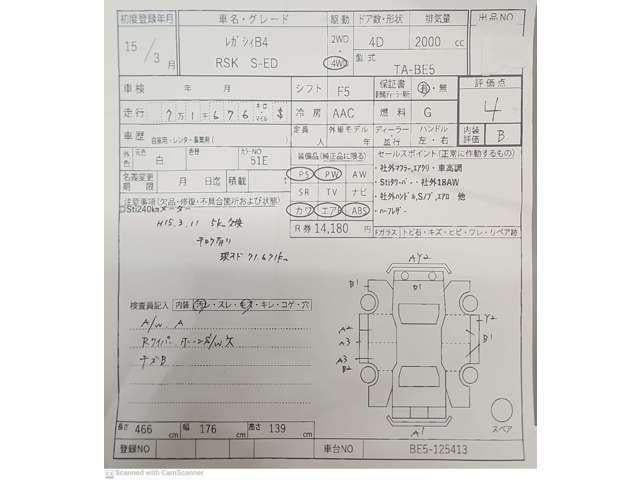 初度登録年月 車名・グレード 駆動 ドア数・形状 排気量 出品NO
15/3月 レガシィB4 2WD 4D 2000 cc
RSK S-ED 4WD 型式 TA-BE5
車検 年 月 シフト F5 保証書 有・無 評価点
走行 7万1千676 キロ マイル $ 冷房 AAC 燃料 G 4
車歴 自家用・レンター・事業用( ) 定員 人 外車モデル 年 ディーラー 並行 ハンドル 左・右 内装評価 B
外色 元色 白 色替 カラーNO 51E 装備品(純正品に限る) セールスポイント(正常に作動するもの)
名義変更期限 月 日迄 積載 PS PW AW ・社外マフラー,エアクリ・車高調
注意事項(欠品・修復・不具合箇所および状態) SR TV ナビ ・Stiタワーバー・社外18AW
Sti240kmメーター カワ エアB ABS ・社外ハンドル,Sノブ,エアロ 他
H15.3.11 5km 交換 R券 14,180 円 ・ハーフレザー
Fガラス トビ石・キズ・ヒビ・ワレ・リペア跡
71,671km
検査員記入 内装 汚レ・スレ・キズ・キレ・コゲ・穴
A/W A
Rワイパー
キズB
AY2
B1 D1
Y2
A2 B1
A3
A3
B2
A1
スペア
長さ 466 cm 幅 176 cm 高さ 139 cm
登録NO 車台NO BE5-125413
Scanned with CamScanner